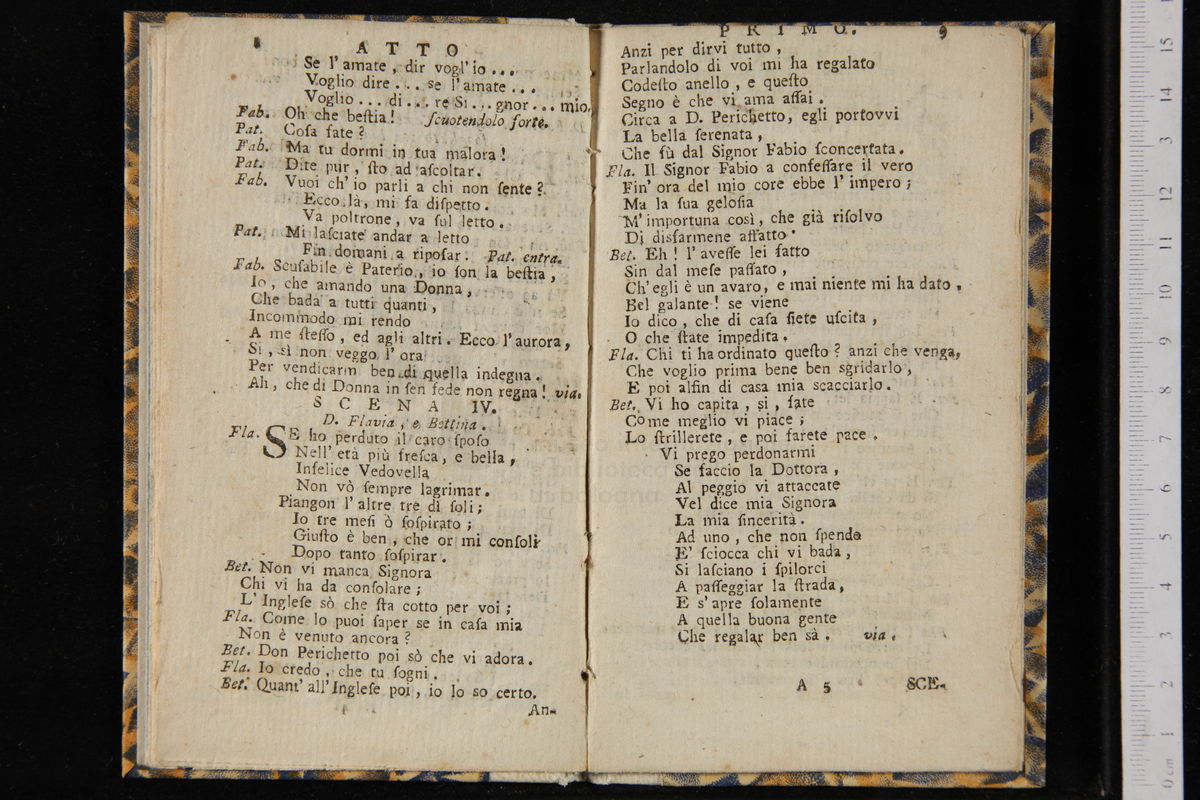 8 ATTO
Se l'amate, dir vogl'io ...
Voglio dire ... se l'amate ...
Voglio ... di ... re Si ... gnor ... mio.
Fab. Oh che beſtia! ſcuotendolo forte.
Pat. Coſa fate?
Fab. Ma tu dormi in tua malora!
Pat. Dite pur, ſto ad aſcoltar.
Fab. Vuoi ch' io parli a chi non ſente?
Ecco là, mi fa diſpetto.
Va poltrone, va ſul letto.
Pat. Mi laſciate andar a letto
Fin domani a ripoſar. Pat. entra.
Fab. Scuſabile è Paterio, io ſon la beſtia,
Io, che amando una Donna,
Che bada a tutti quanti,
Incommodo mi rendo
A me ſteſſo, ed agli altri. Ecco l'aurora,
Si, sì non veggo l' ora
Per vendicarm ben di quella indegna.
Ah, che di Donna in ſen fede non regna! via.
SCENA IV.
D. Flavia, e Bettina.
Fla. SE ho perduto il caro ſpoſo
Nell' età più freſca, e bella,
Infelice Vedovella
Non vò ſempre lagrimar.
Piangon l' altre tre dì ſoli;
Io tre meſi ò ſoſpirato;
Giuſto è ben, che or mi conſoli
Dopo tanto ſoſpirar.
Bet. Non vi manca Signora
Chi vi ha da conſolare;
L' Ingleſe sò che ſta cotto per voi;
Fla. Come lo puoi ſaper se in caſa mia
Non è venuto ancora?
Bet. Don Perichetto poi sò che vi adora.
Fla. Io credo, che tu ſogni.
Bet. Quant' all' Ingleſe poi, io lo so certo.
An-
PRIMO. 9
Anzi per dirvi tutto,
Parlandolo di voi mi ha regalato
Codeſto anello, e queſto
Segno è che vi ama aſſai.
Circa a D. Perichetto, egli portovvi
La bella ſerenata,
Che fù dal Signor Fabio ſconcertata.
Fla. Il Signor Fabio a confeſſare il vero
Fin' ora del mio core ebbe l' impero;
Ma la ſua geloſia
M' importuna così, che già riſolvo
Di disfarmene affatto.
Bet. Eh! l' aveſſe lei fatto
Sin dal meſe paſſato,
Ch' egli è un avaro, e mai niente mi ha dato.
Bel galante! se viene
Io dico, che di caſa ſiete uſcita,
O che ſtate impedita.
Fla. Chi ti ha ordinato queſto? anzi che venga,
Che voglio prima bene ben sgridarlo,
E poi alfin di casa mia scacciarlo.
Bet. Vi ho capita, si, fate
Come meglio vi piace;
Lo ſtrillerete, e poi farete pace.
Vi prego perdonarmi
Se faccio la Dottora,
Al peggio vi attaccate
Vel dice mia Signora
La mia ſincerità.
Ad uno, che non ſpende
E' ſciocca chi vi bada,
Si laſciano i ſpilorci
A paſſeggiar la ſtrada,
E s' apre ſolamente
A quella buona gente
Che regalar ben sà. via.
A 5 SCE-